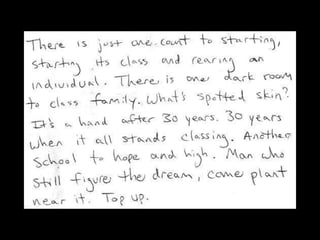 There is just one count to starting,
starting its class and rearing an
individual. There is one dark room
to class family. What's spotted skin?
It's a hand after 30 years. 30 years
when it all stands classing. Another
School to hope and high. Man who
still figure the dream, come plant
near it. Top up.